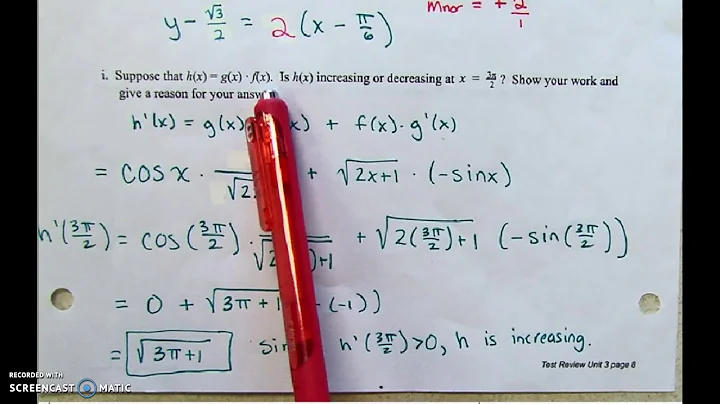 y - √3/2 = 2 (x - π/6)
m_nor = + 2/1
i. Suppose that h(x) = g(x) · f(x). Is h(x) increasing or decreasing at x = 3π/2 ? Show your work and
give a reason for your
h'(x) = g(x) x) + f(x) · g'(x)
= cos x · √2 + √2x+1 · (-sinx)
h'(3π/2) = cos(3π/2) · √2 )+1 + √2(3π/2)+1 (-sin(3π/2))
= 0 + √3π+1 (-1))
= √3π+1 h'(3π/2) >0, h is increasing.
Test Review Unit 3 page 6
RECORDED WITH
SCREENCAST MATIC